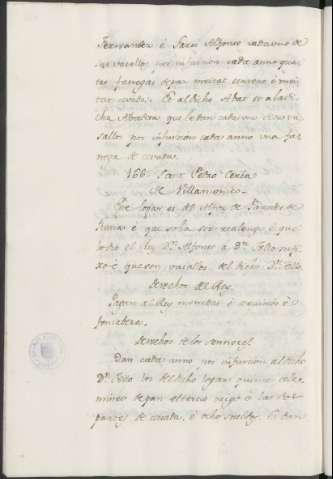 Ferrandez é Garci Alfonso cada uno de
sus vasallos por infurcion cada anno quatro
fanegas de pan meitad centeno é meitad
cevada. É al dicho Abat o a la dicha
Abadesa que le dan cada un de sus vasallos
por infurcion cada anno una fanega
de cevada.
166. Sant Pedro cerca
de Villamorico.
Este logar es de Alfoz de
é que solia ser realengo, é que
lo dio el Rey Dn. Alfonso a Dn. Tello su fijo
é que son vasallos del dicho Dn. Tello.
Derechos del Rey.
Pagan al Rey monedas é servicios é
fonsadera.
Derechos de los sennores
Dan cada anno por infurcion al dicho
Dn. Tello los del dicho logar quince celemines
de pan el tercio trigo é las dos
partes de cevada, é ocho sueldos. É dan